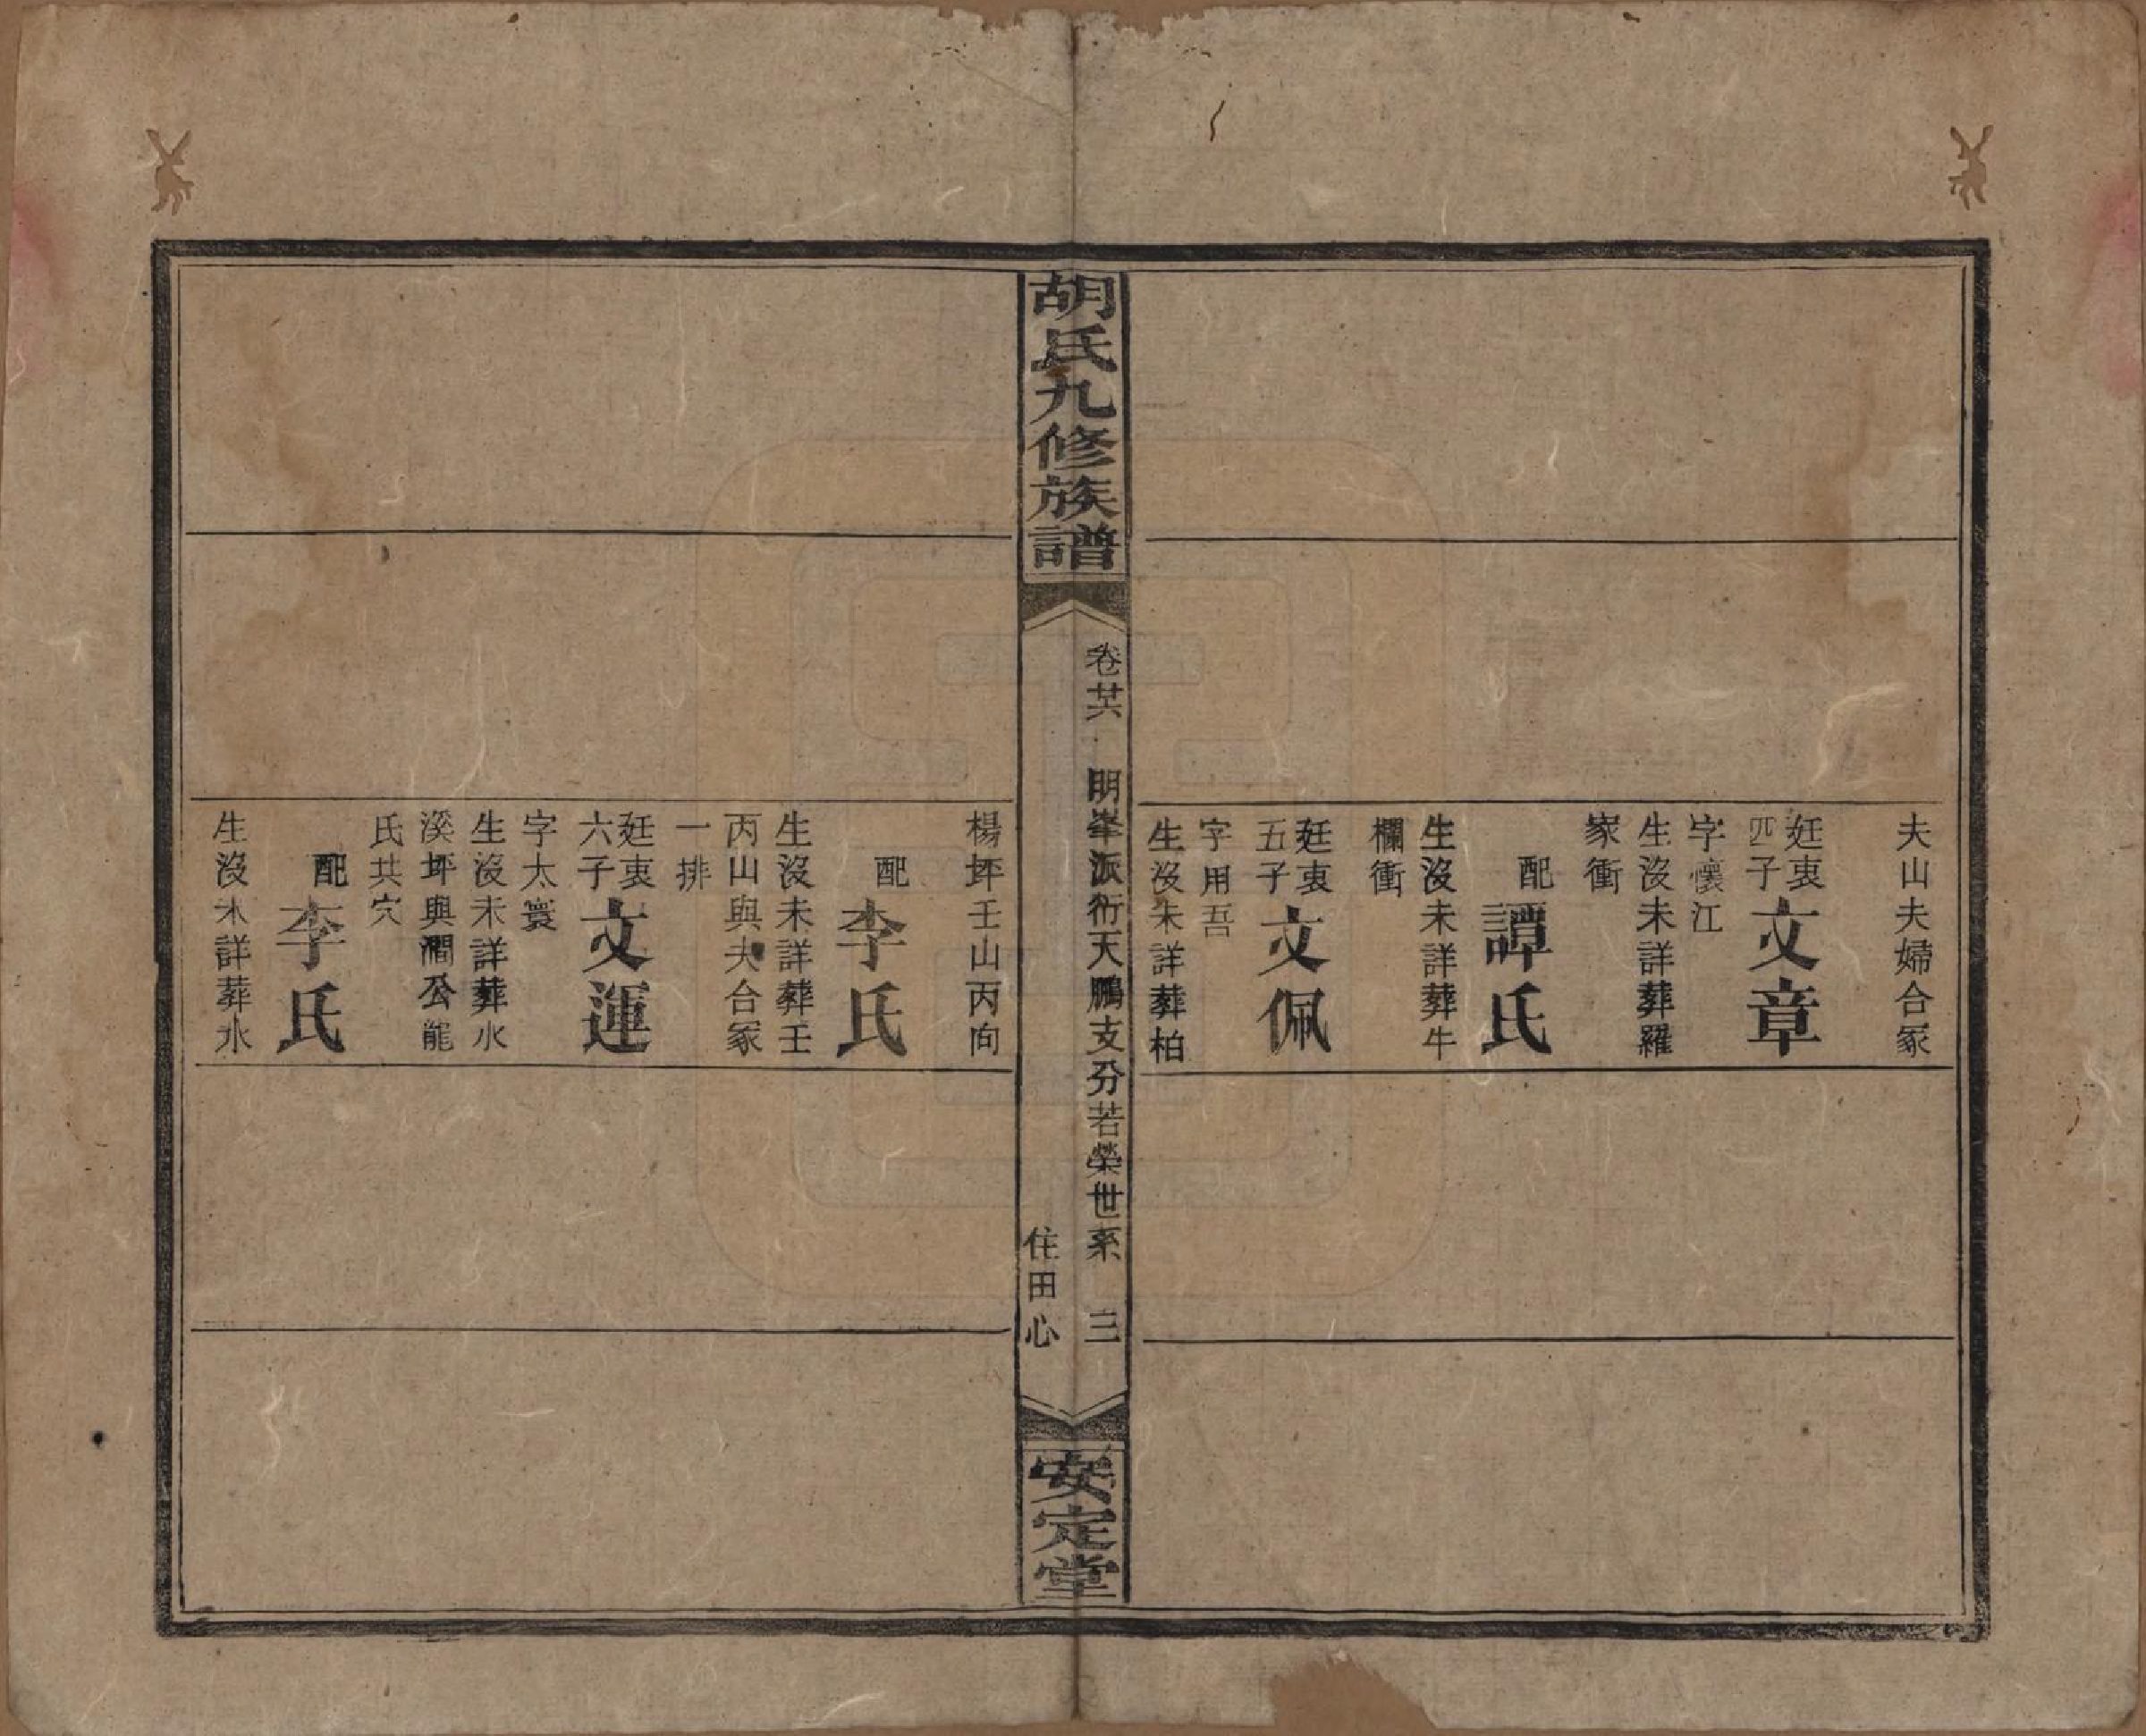 夫山夫婦合冢
廷衷四子
文章
字懷江
生沒未詳葬羅
家衝
配
譚氏
生沒未詳葬牛
欄衝
廷衷五子
文佩
字用吾
生沒未詳葬柏
胡氏九修族譜
卷廿六
明峯派衍天鵬支分若榮世系
三
住田心
安定堂
楊坪壬山丙向
配
李氏
生沒未詳葬壬
丙山與夫合冢
一排
廷衷六子
文運
字太寰
生沒未詳葬水
溪坪與澗公龍
氏共穴
配
李氏
生沒未詳葬水